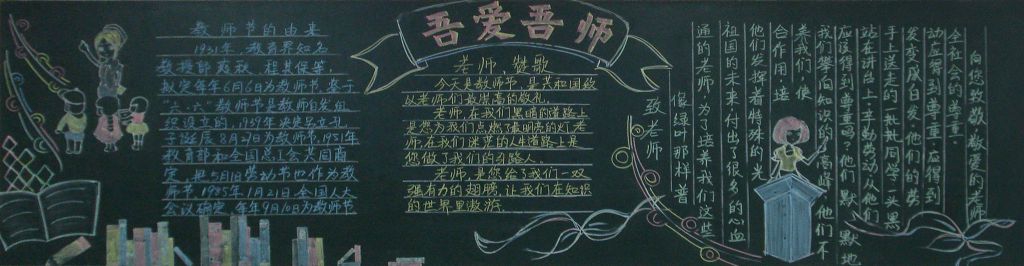 教师节的由来
1931年,教育界知名
教授邰爽秋、程其保等,
拟定每年6月6日为教师节.鉴于
“六.六”教师节是教师自发组
织设立的,1939年决定另立孔
子诞辰8月27日为教师节,1951年
教育部和全国总工会共同商
定,把5月1日劳动节也作为教
师节1985年1月21日全国人大
会议确定,每年9月10日为教师节
吾爱吾师
老师,赞歌
今天是教师节,是共和国致
以老师们最崇高的敬礼.
老师,在我们黑暗的道路上
是您为我们点燃了最明亮的灯,老
师,在我们迷茫的人生道路上是
您做了我们的引路人.
老师,是您给了我们一双
强有力的翅膀,让我们在知识
的世界里遨游.
向您致敬,敬爱的老师
全社会的尊重.
动应得到尊重,应得到
发变成白发,他们的劳
手上送走的一批批同学,一头黑
站在讲台上,辛勤劳动,从他们
应该得到尊重吗?他们默默地
我们攀的知识的高峰,他们不
类我们,使
合作用,造
他们发挥着特殊的光
祖国的未来付出了很多的心血
通的老师,为了培养我们这些
像绿叶那样普
致老师